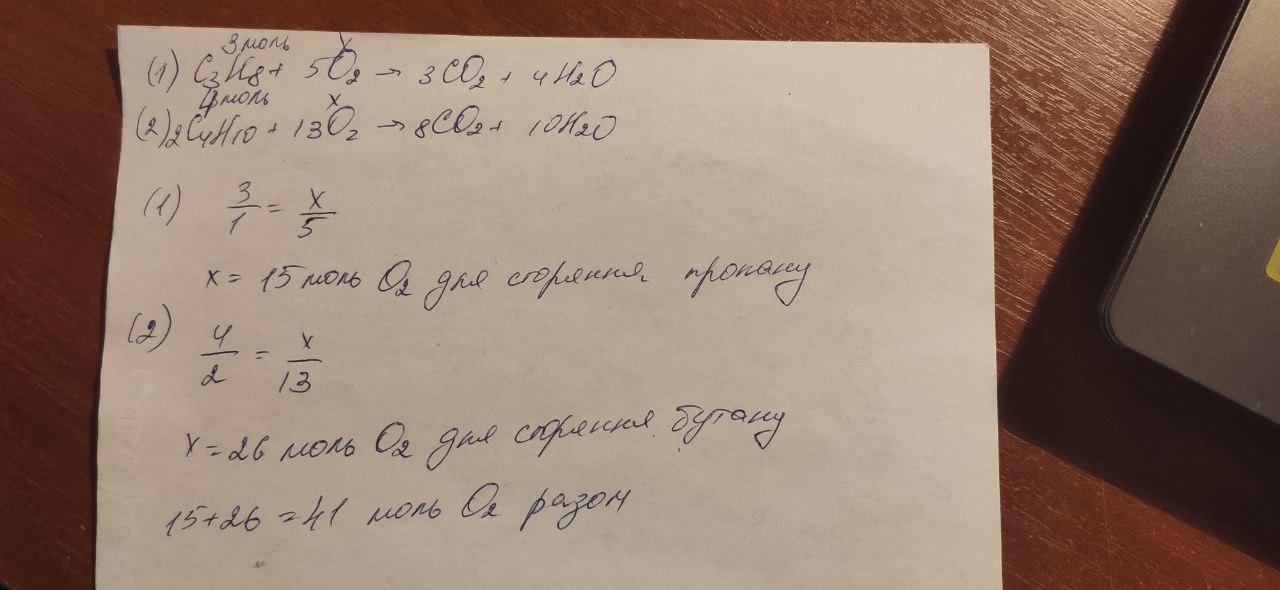 3 моль x
(1) C3H8 + 5O2 → 3CO2 + 4H2O
4 моль x
(2) 2C4H10 + 13O2 → 8CO2 + 10H2O
(1) 3/1 = x/5
x = 15 моль O2 для сгоряння пропану
(2) 4/2 = x/13
x = 26 моль O2 для сгоряння бутану
15+26 = 41 моль O2 разом